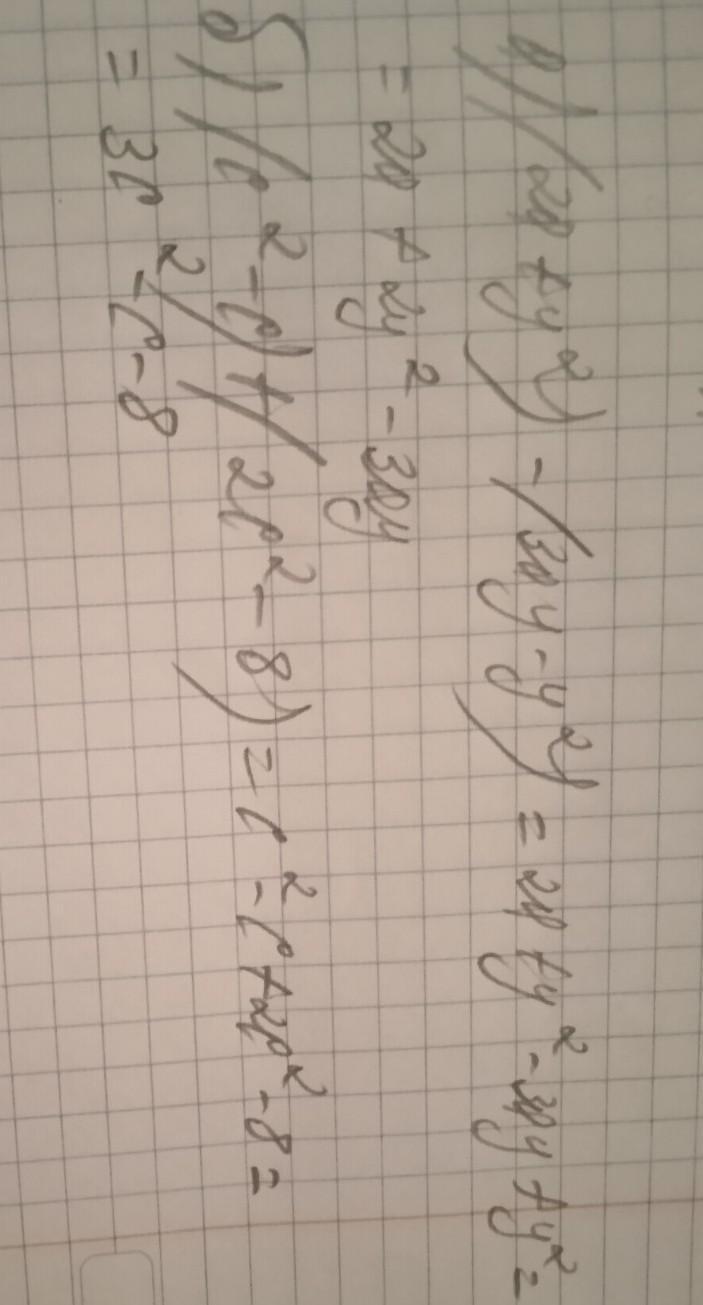 в) (2в + y²) - (3вy - y²) = 2в + y² - 3вy + y² =
= 2в + 2y² - 3вy
б) (c² - c) + (2c² - 8) = c² - c + 2c² - 8 =
= 3c² - c - 8